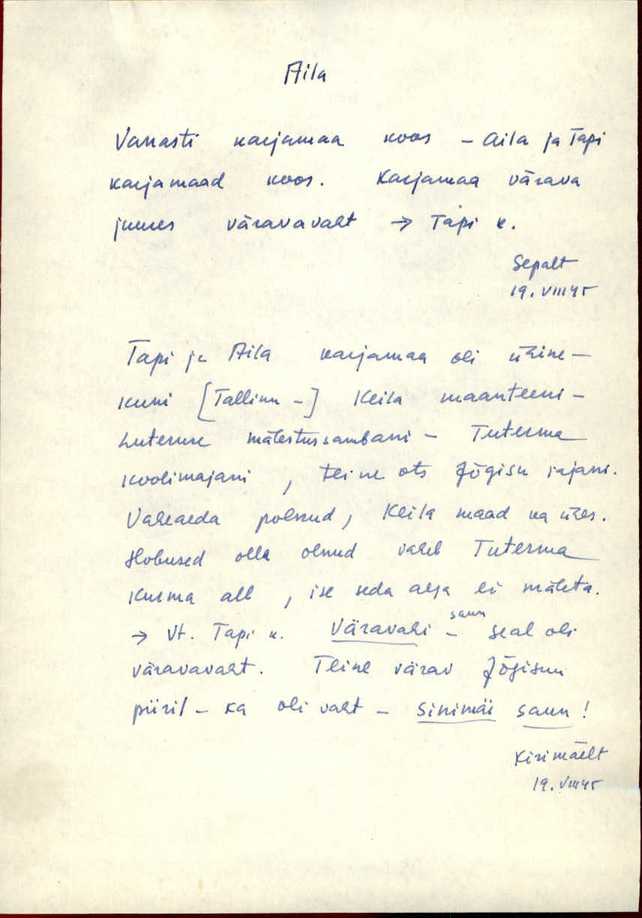 Aila
Vanasti karjamaa koos – Aila ja Tapi
karjamaad koos. Karjamaa värava
juures väravavaht → Tapi k.
Sepalt
19. VIII 45
Tapi ja Aila karjamaa oli ühine –
kuni [Tallinn –] Keila maanteeni –
Luteruse mälestussambani – Tuterma
koolimajani, teine ots Jõgisu rajani.
Vaheaeda polnud, Keila maad ka ühes.
Hobused olla olnud vahel Tuterma
kurma all, ise seda aega ei mäleta.
→ Vt. Tapi k. Väravahi – saun seal oli
väravavaht. Teine värav Jõgisuu
piiril – ka oli vaht – Sinimäe saun!
Kirimäelt
19. VIII 45